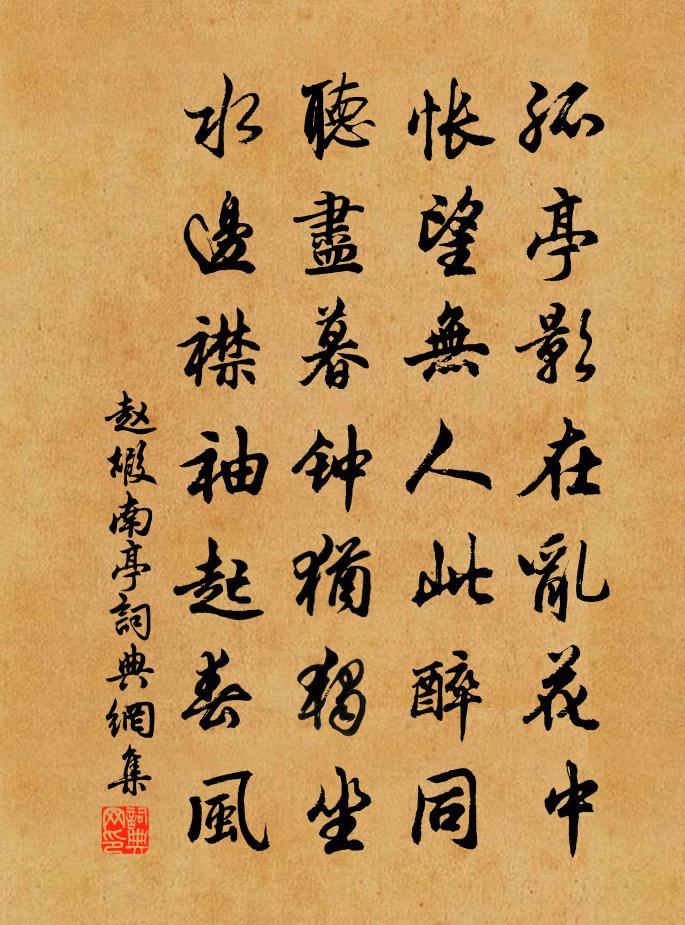 孤亭影在亂花中
悵望無人此醉同
聽盡暮钟猶獨坐
水邊襟袖起春風
赵嘏南亭詞典網集
詞典网印